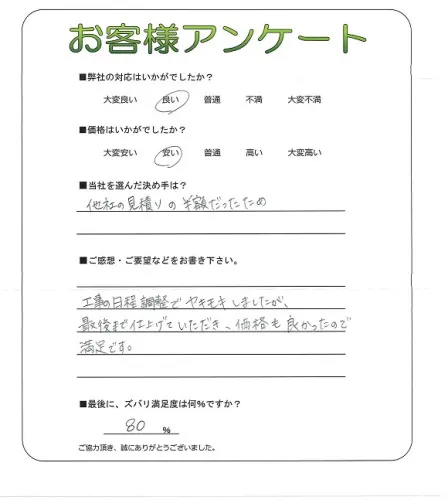 お客様アンケート
■弊社の対応はいかがでしたか？
大変良い 良い 普通 不満 大変不満
■価格はいかがでしたか？
大変安い 安い 普通 高い 大変高い
■当社を選んだ決め手は？
他社の見積りの半額だったため
■ご感想・ご要望などをお書き下さい。
工事の日程調整でヤキモキしましたが、
最後まで仕上げていただき、価格も良かったので
満足です。
■最後に、ズバリ満足度は何%ですか？
80 %
ご協力頂き、誠にありがとうございました。